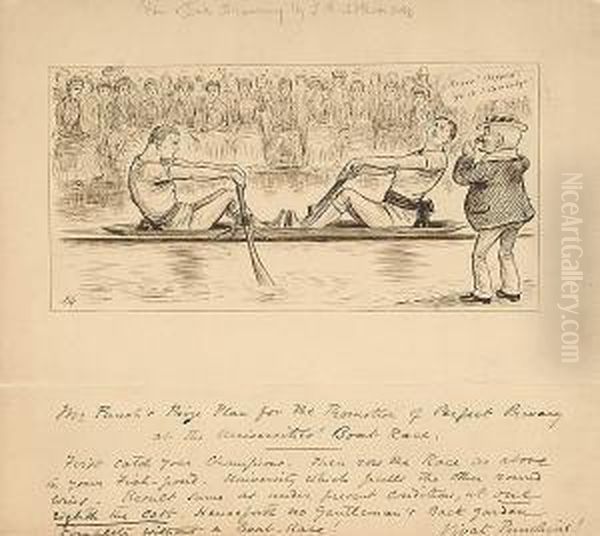 Mr Punch's Prize Plan for the Promotion of Perfect Privacy
at the Universities' Boat Race.
First catch your Champions. Then row the Race as above
in your fish-pond. University which pulls the other round
wins. Result same as under present conditions, at one
eighth the cost. Henceforth no Gentleman's Back garden
complete without a Boat-Race! Vivat Punchius!
NiceArtGallery.com